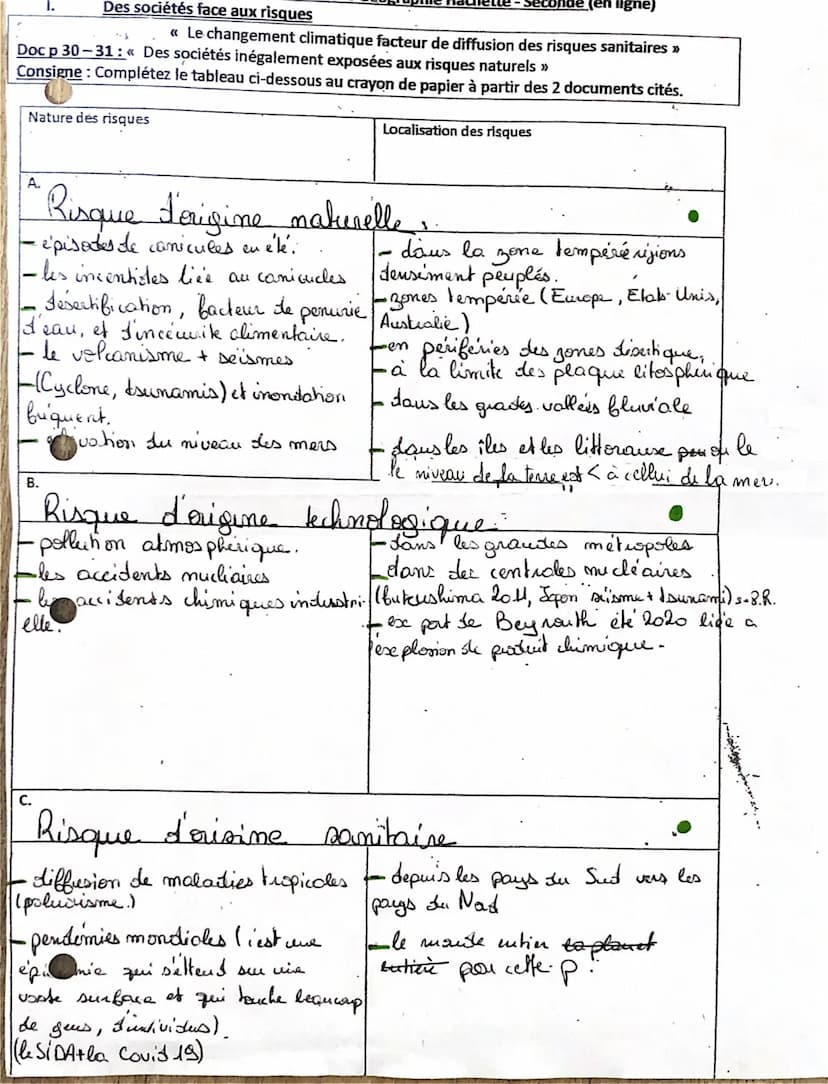 I. Des sociétés face aux risques
Hachette - Seconde (en ligne)
« Le changement climatique facteur de diffusion des risques sanitaires »
Doc p 30 – 31 : « Des sociétés inégalement exposées aux risques naturels »
Consigne : Complétez le tableau ci-dessous au crayon de papier à partir des 2 documents cités.
Nature des risques
Localisation des risques
A.
Risque d'origine naturelle.
- épisodes de canicules en été.
- les incentides liée au canicules
- désertification, facteur de penurie
d'eau, et d'insécurité alimentaire.
- le volcanisme + séismes
- (Cyclone, tsunamis) et inondation
fréquent.
- vation du niveau des mers
- dans la zone tempéré régions
densément peuplés.
- zones tempérée (Europe, Etats-Unis,
Australie)
- en périféries des zones désertique,
- à la limite des plaque litosphérique
- dans les grades vallées fluviale
- dans les îles et les littoraux où le
le niveau de la terre est < à cellui de la mer.
B.
Risque d'origine technologique :
- pollution atmosphérique.
- les accidents nucliaires
- les accidents chimiques industri-
elle.
- dans les grandes métropoles
- dans des centrales nucléaires
(Fukushima 2011, Japon séisme + tsunami) s-8.R.
- ex port de Beyrouth été 2020 liée a
l'explosion de produit chimique -
C.
Risque d'orisine sanitaire
- diffusion de maladies tropicales
(paludisme.)
- pendémies mondiales (c'est une
épi mie qui s'éttend sur une
vaste surface et qui touche beaucoup
de gens, d'individus)
(le SIDA + la Covid 19)
- depuis les pays du Sud vers les
pays du Nord
- le monde entier la planet
entière pour cette p.